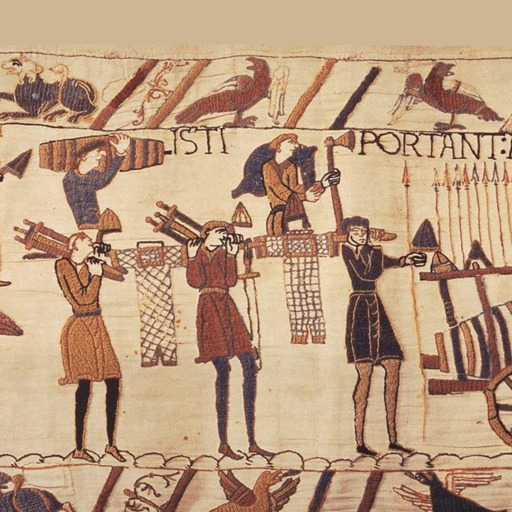 ISTI PORTANT: